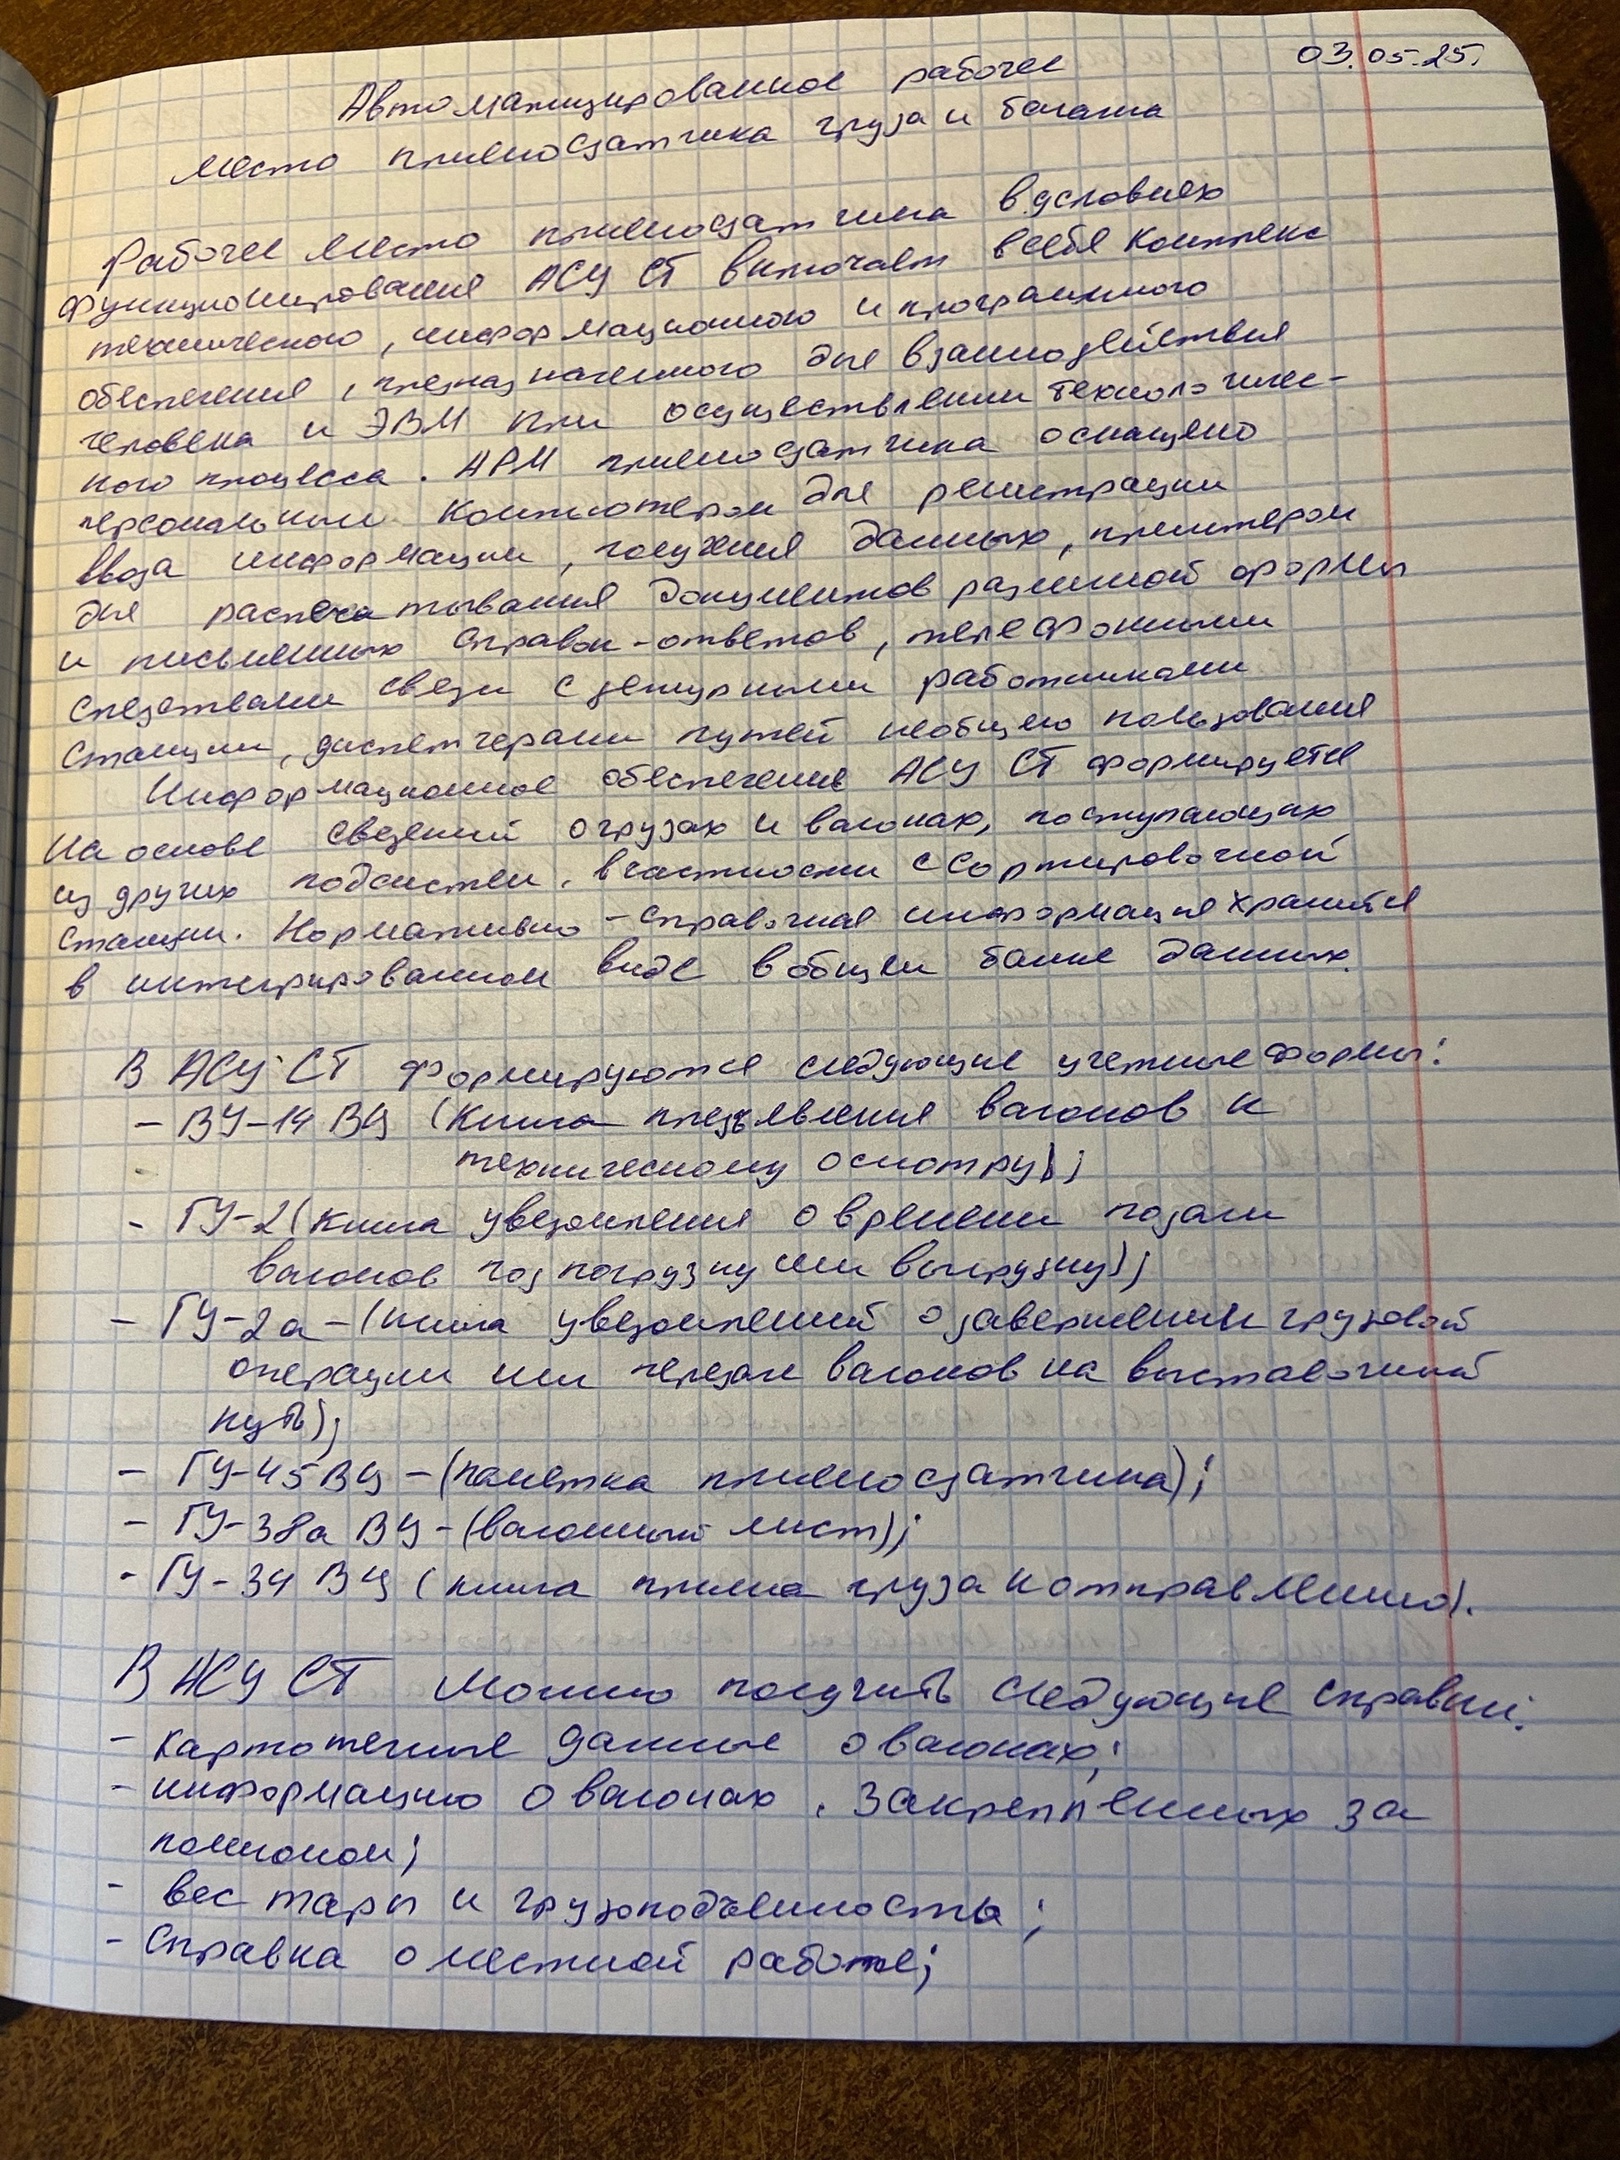 03.05.25.
Автоматизированное рабочее
место приемосдатчика груза и багажа
Рабочее место приемосдатчика в условиях
функционирования АСУ СТ включает в себя комплекс
технического, информационного и программного
обеспечения, предназначенного для взаимодействия
человека и ЭВМ при осуществлении технологичес-
кого процесса. АРМ приемосдатчика оснащено
персональным компьютером для регистрации
ввода информации, получения данных, принтером
для распечатывания документов различной формы
и письменных справок-ответов, телефонными
средствами связи с дежурными работниками
станции, диспетчерами путей необщего пользования
Информационное обеспечение АСУ СТ формируется
на основе сведений о грузах и вагонах, поступающих
из других подсистем, в частности с сортировочной
станции. Нормативно-справочная информация хранится
в интегрированном виде в общем банке данных.
В АСУ СТ формируются следующие учетные формы:
- ВУ-14 ВЦ (Книга предъявления вагонов к
техническому осмотру);
- ГУ-2 (книга уведомления о времени подачи
вагонов под погрузку или выгрузку);
- ГУ-2а - (книга уведомлений о завершении грузовой
операции или передаче вагонов на выставочный
путь);
- ГУ-45 ВЦ - (памятка приемосдатчика);
- ГУ-38а ВЦ - (вагонный лист);
- ГУ-34 ВЦ (книга приема груза к отправлению).
В АСУ СТ можно получить следующие справки:
- картотечные данные о вагонах;
- информацию о вагонах, закрепленных за
полигоном;
- вес тары и грузоподъемность;
- Справка о местной работе;